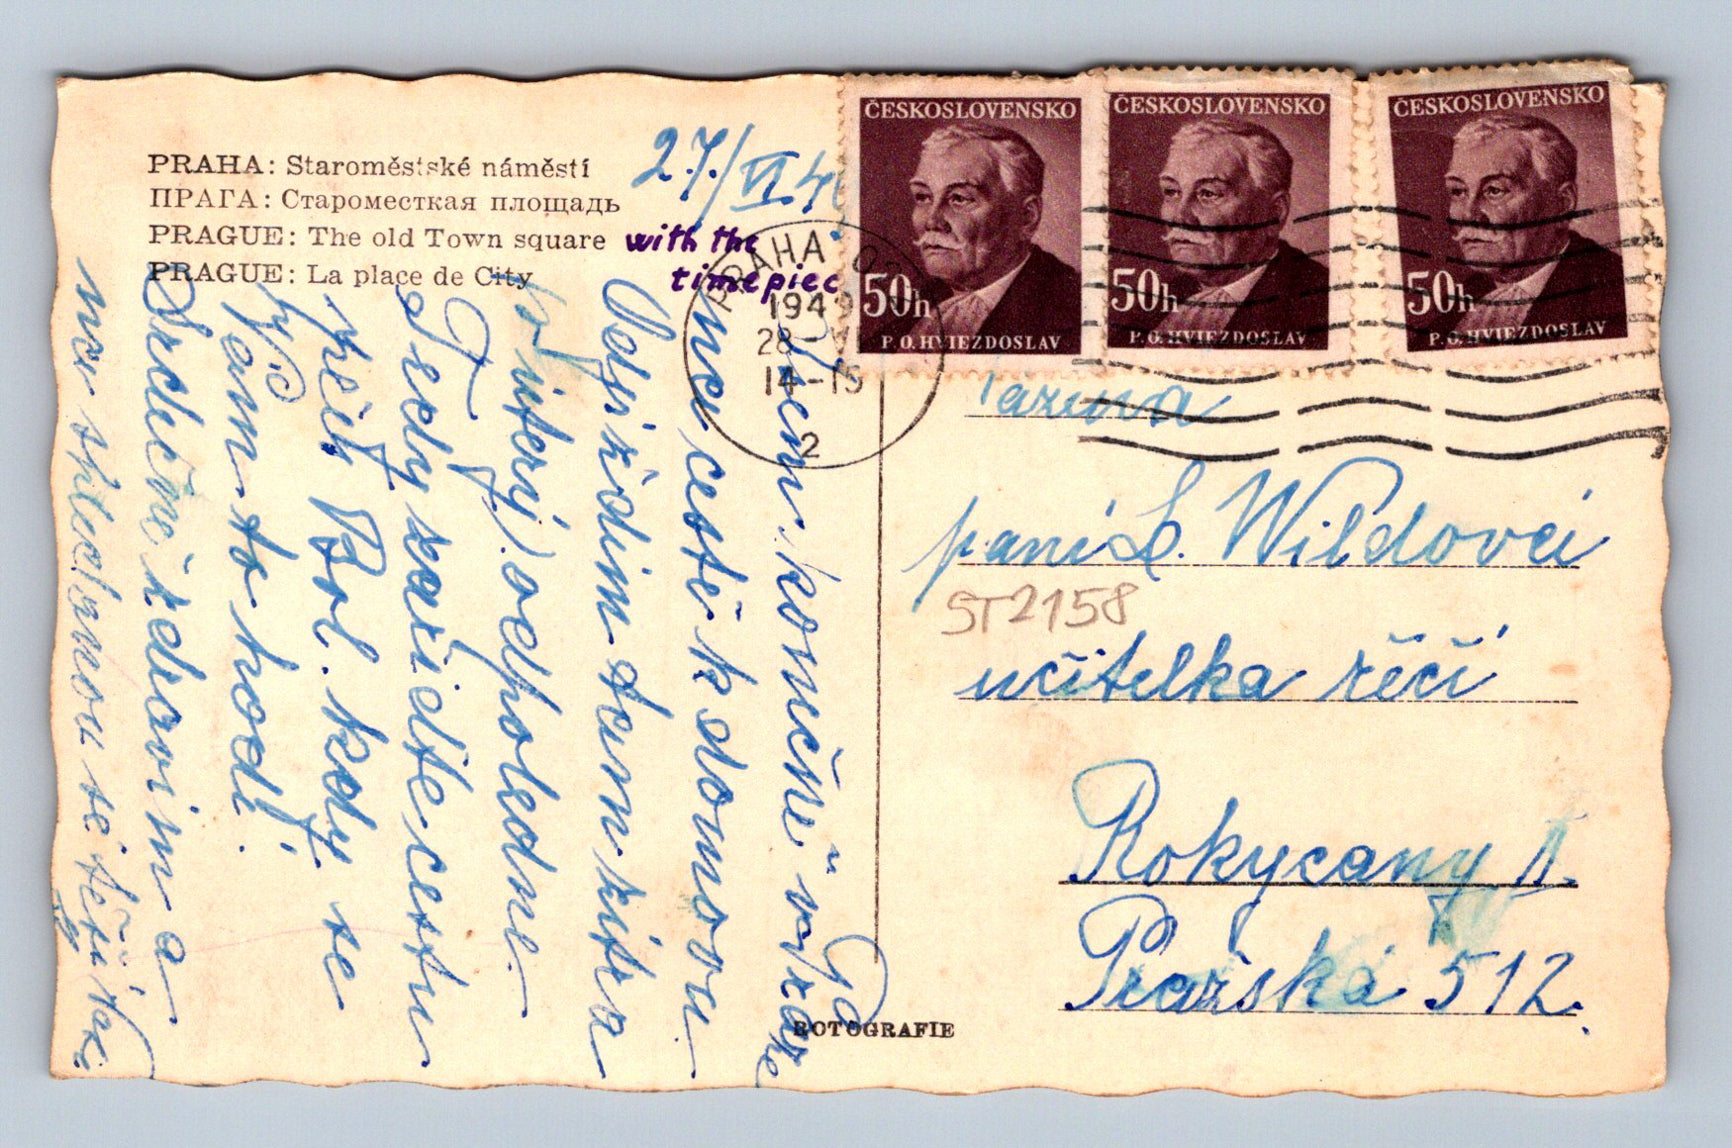 PRAHA: Staroměstské náměstí
ПРАГА: Староместкая площадь
PRAGUE: The old Town square
PRAGUE: La place de City
with the
timepiec
27./VI.4
ČESKOSLOVENSKO
50h
P. O. HVIEZDOSLAV
ČESKOSLOVENSKO
50h
P. O. HVIEZDOSLAV
ČESKOSLOVENSKO
50h
P. O. HVIEZDOSLAV
PRAHA
1949
28
14-15
2
Jsem konečně v Praze
cestě k domovu.
Odjíždím tam zítra
odpoledne.
Tedy zařiďte cestu
Bol. kdy se
Vám to hodí.
Srdečně zdravím a
na shledanou se těší
paní L. Wildová
ST2158
učitelka řečí
Rokycany II.
Pražská 512.
ROTOGRAFIE